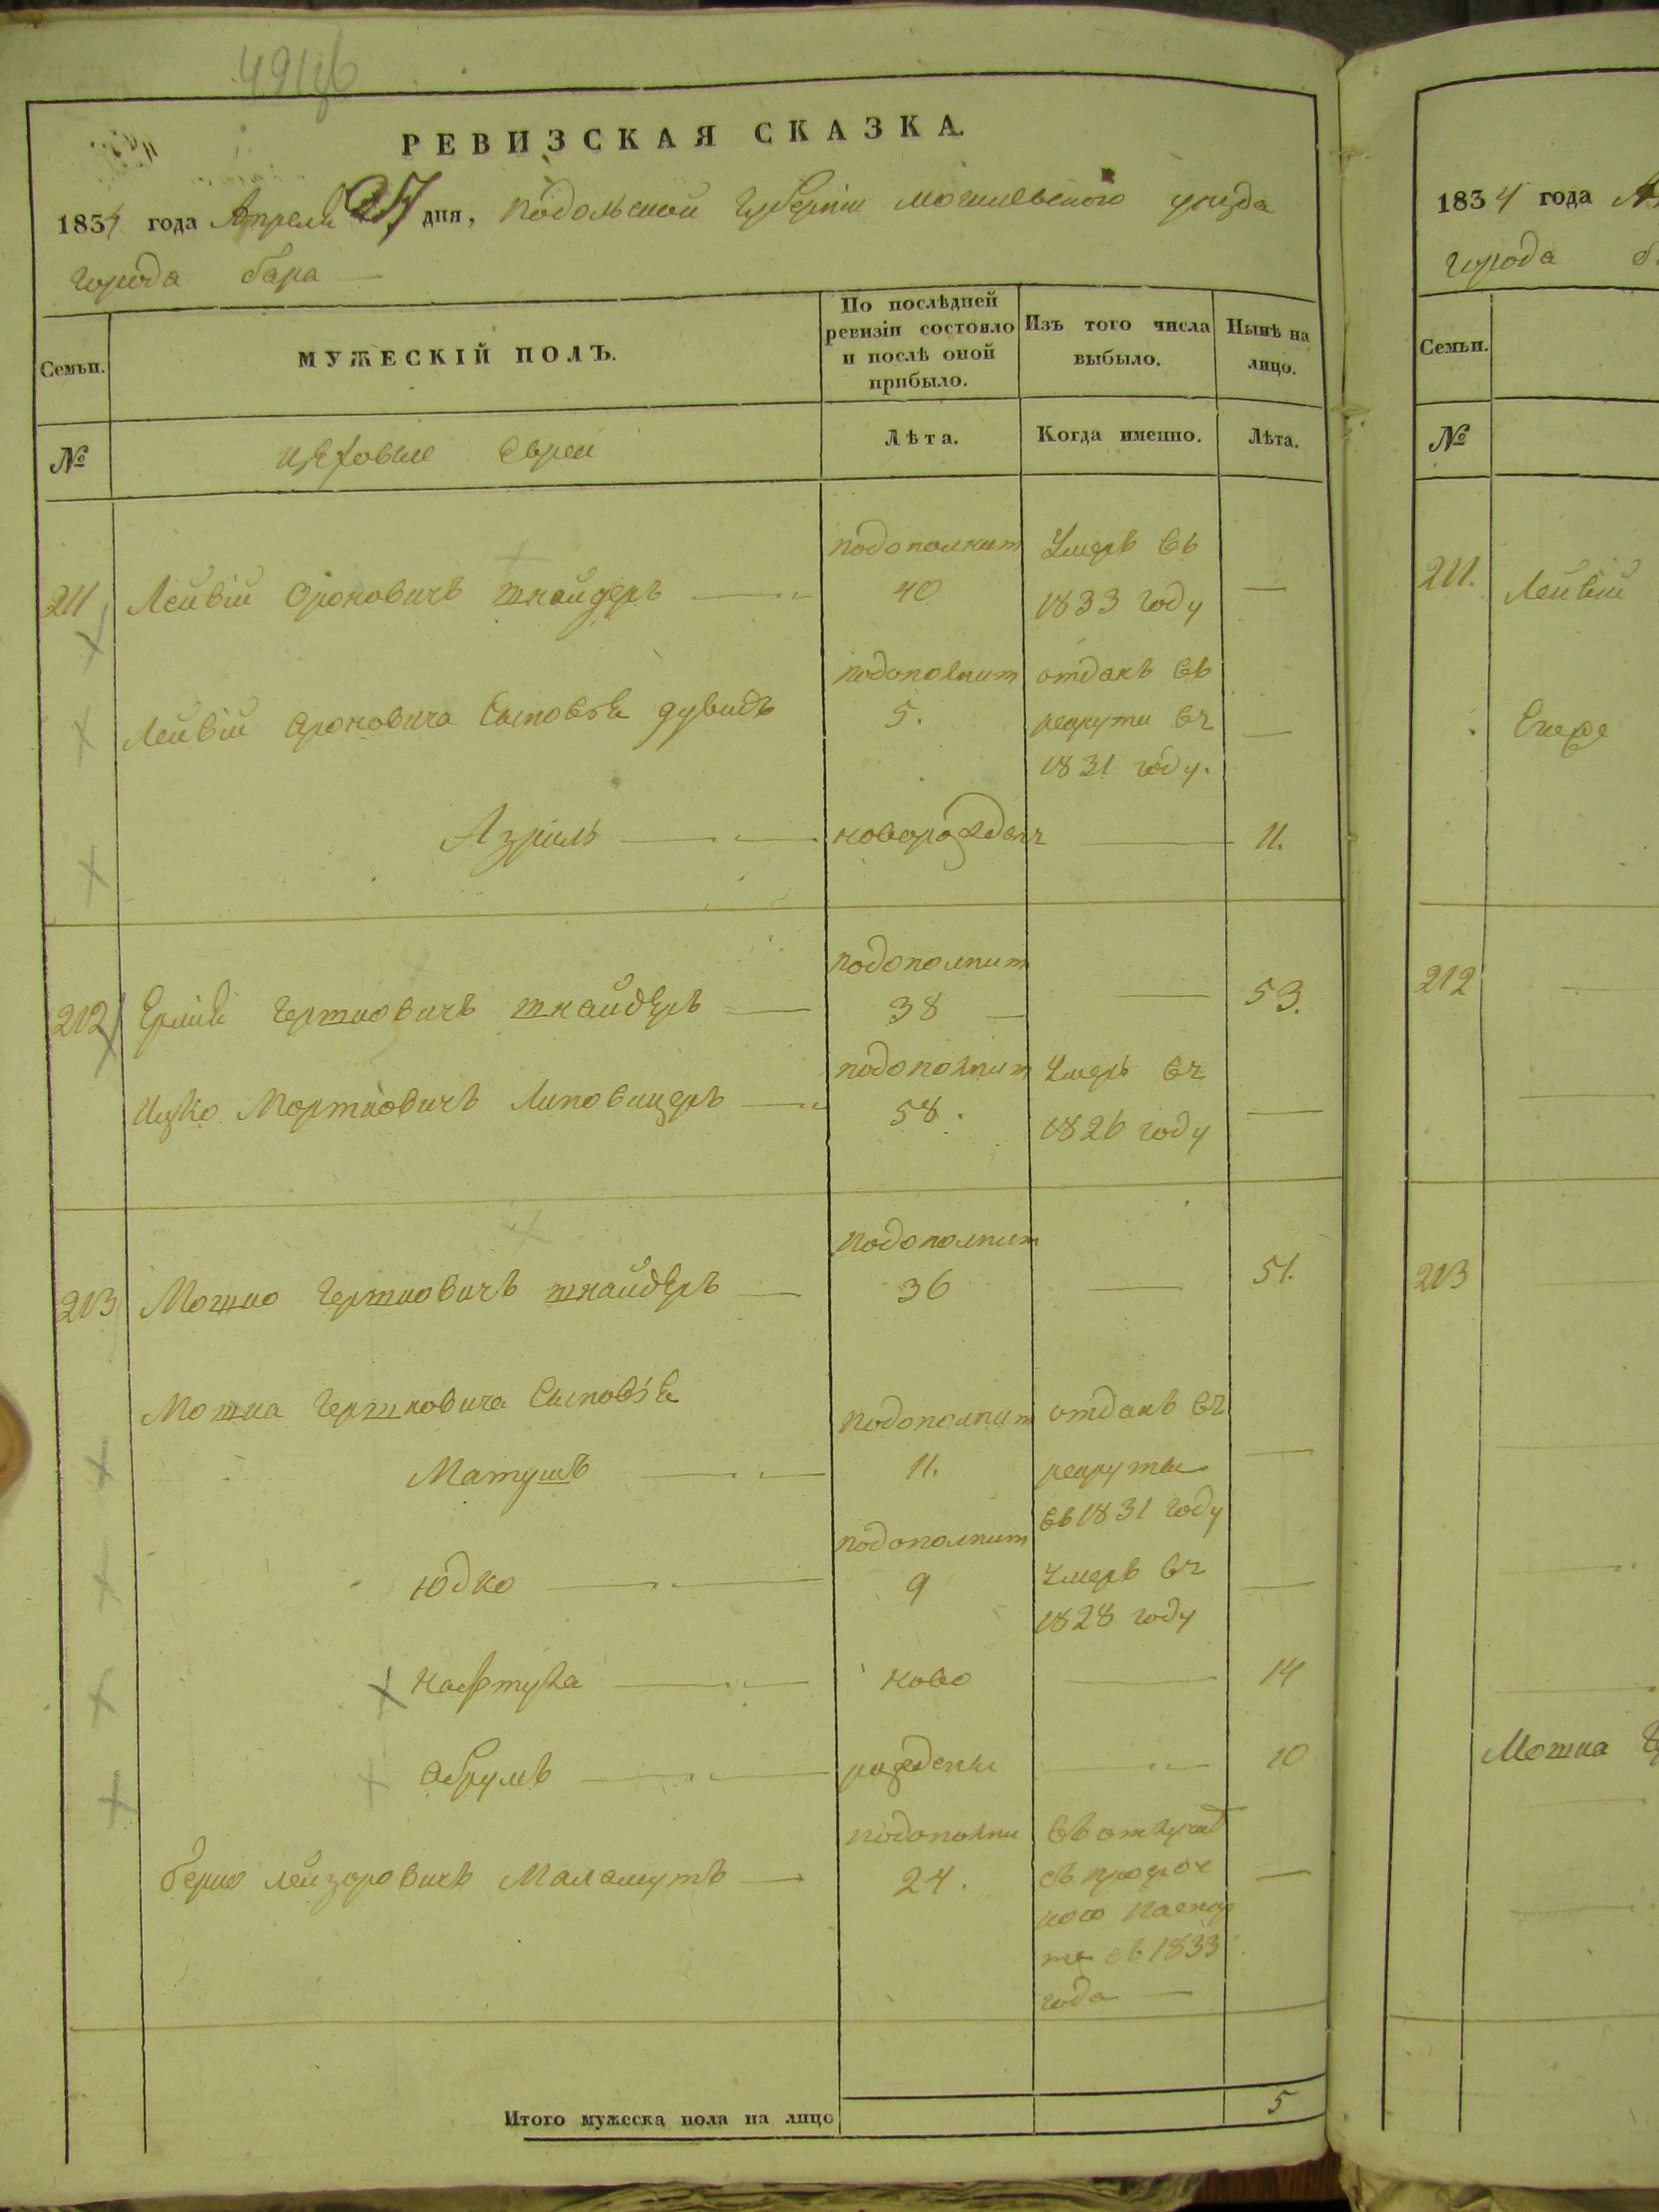 РЕВИЗСКАЯ СКАЗКА.
1834 года Апреля 27 дня, Подольской Губернии Могилевского уезда
города бара
Семьи. МУЖЕСКІЙ ПОЛЪ. По послѣдней ревизіи состояло и послѣ оной прибыло. Изъ того числа выбыло. Нынѣ на лицо.
№ цеховые Евреи Лѣта. Когда именно. Лѣта.
подополнит Умеръ въ
211 Лейвій Ароновичъ шнайдеръ 40 1833 году —
подополнит отданъ въ
Лейвій Ароновича Сыновья дувидъ 5. рекруты въ —
1831 году.
Азриль новорожден — 11.
подополнит
212 Гершковичъ шнайдеръ 38 — 53.
подополнит Умеръ въ
Ицко Мортковичъ Липовецеръ 58. 1826 году —
подополнит
213 Мошко Гершковичъ шнайдеръ 36 — 51.
Мошка Гершковича Сыновья
подополнит отданъ въ
Матушъ 11. рекруты —
въ 1831 году
подополнит
Юдко 9 Умеръ въ —
1828 году
Нафтула ново — 14
Абрумъ рождены — 10
подополни въ отлучке
берко лейзоровичъ Маламутъ 24. съ просроч —
ного паспор
та съ 1833
года
Итого мужеска пола на лицо 5
1834 года
города
Семьи.
№
211. Лейвій
212
213
Мошка